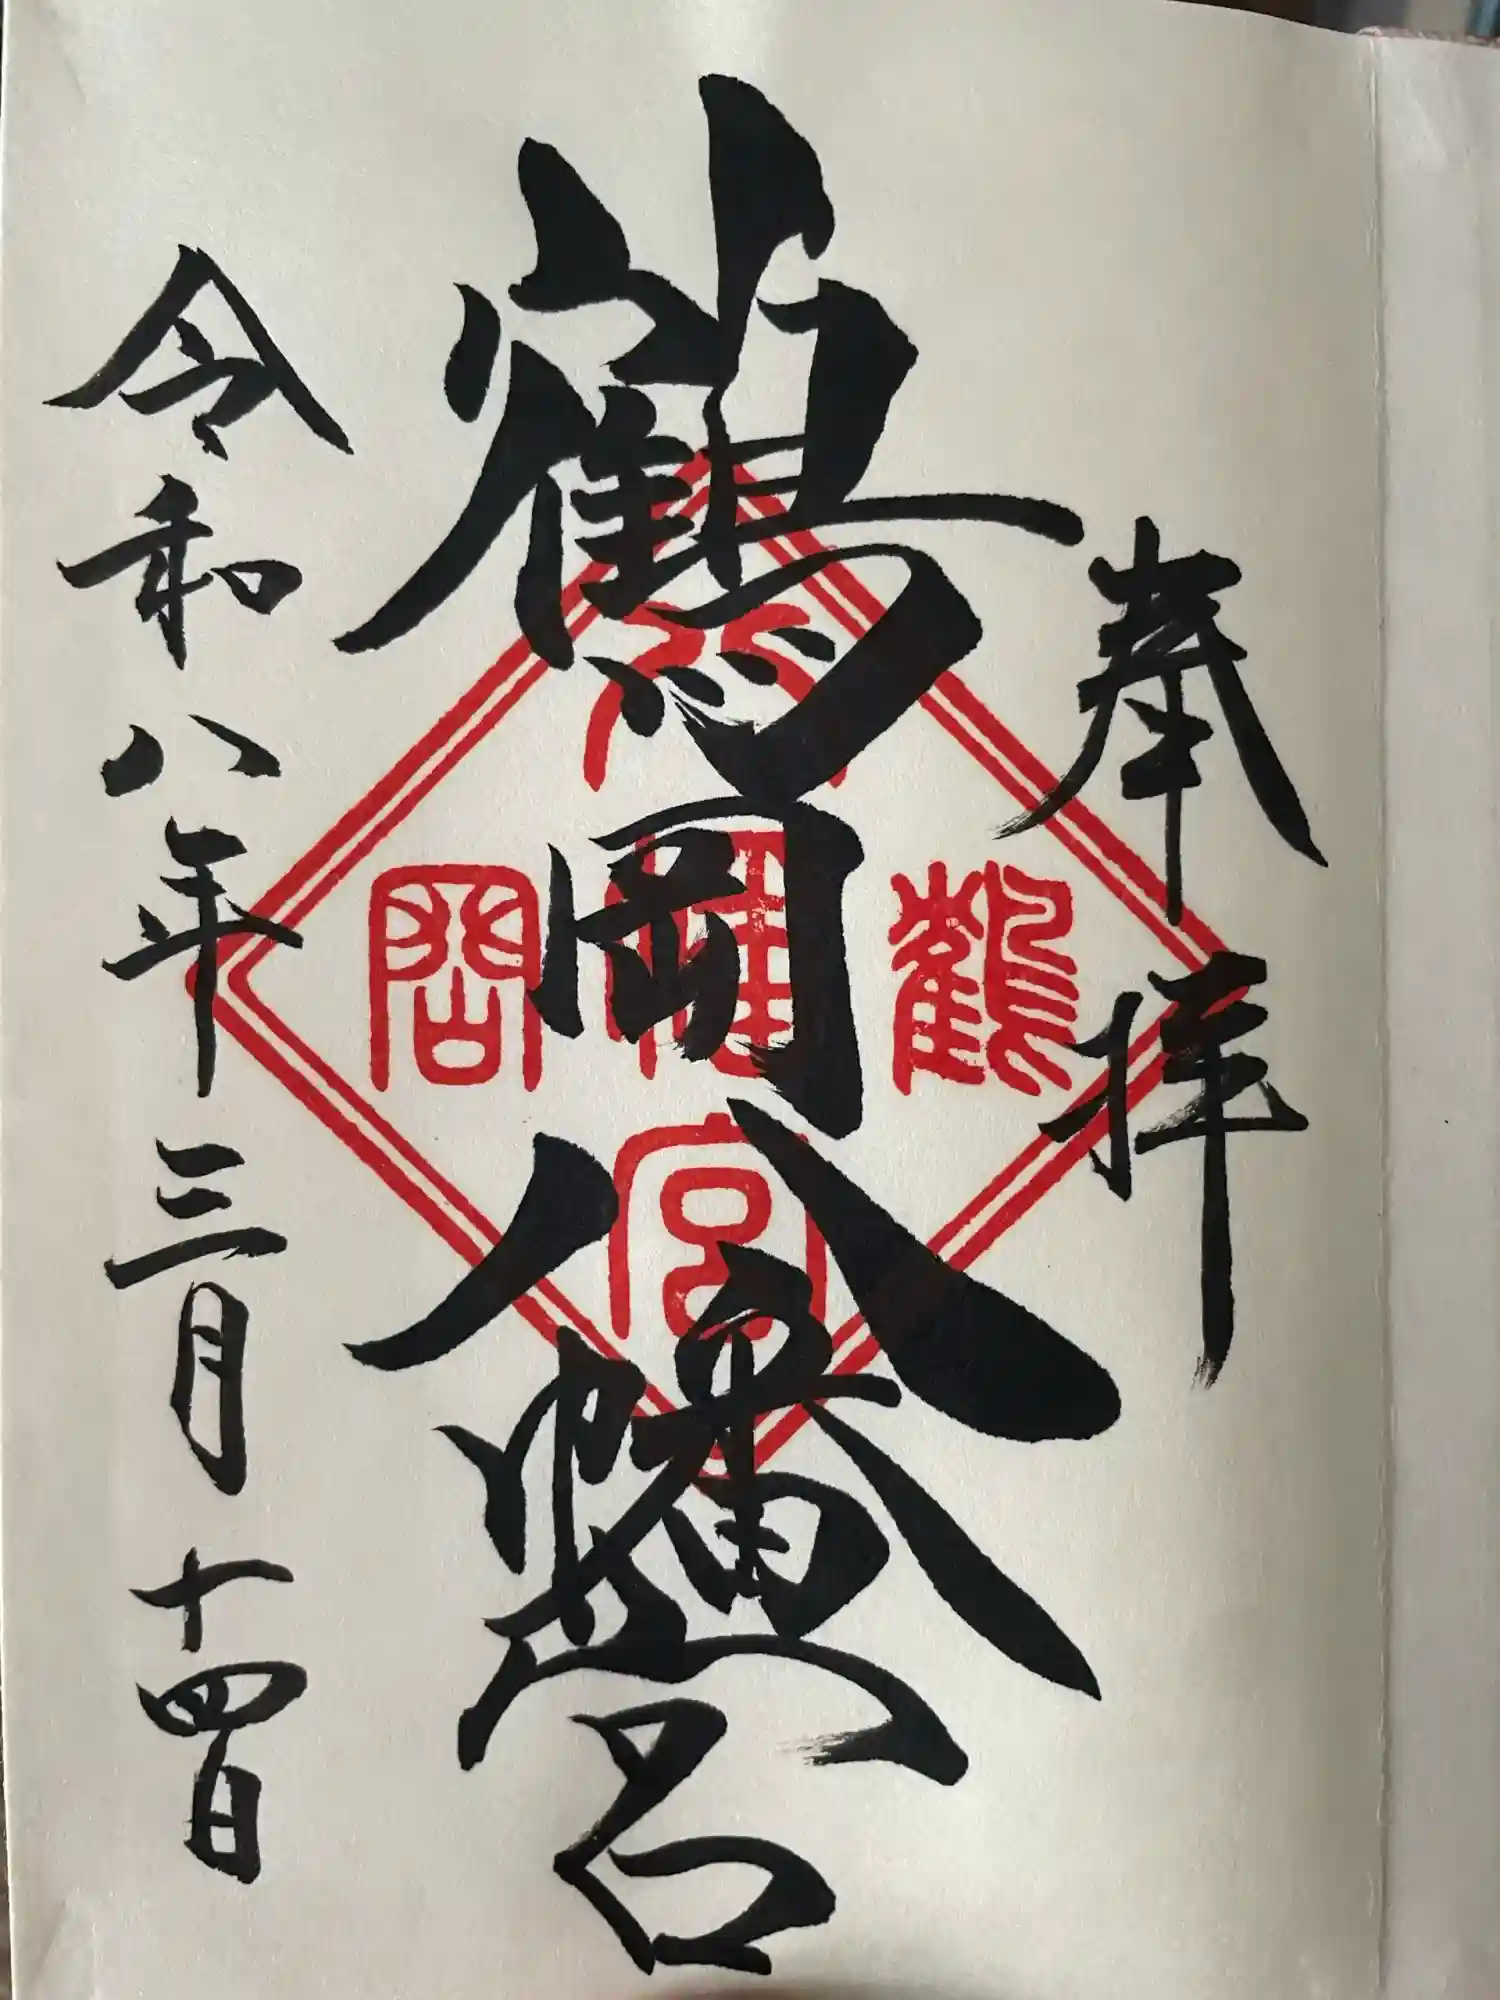 奉拝
鶴岡八幡宮
令和八年三月十四日
鶴
八
幡
宮
岡